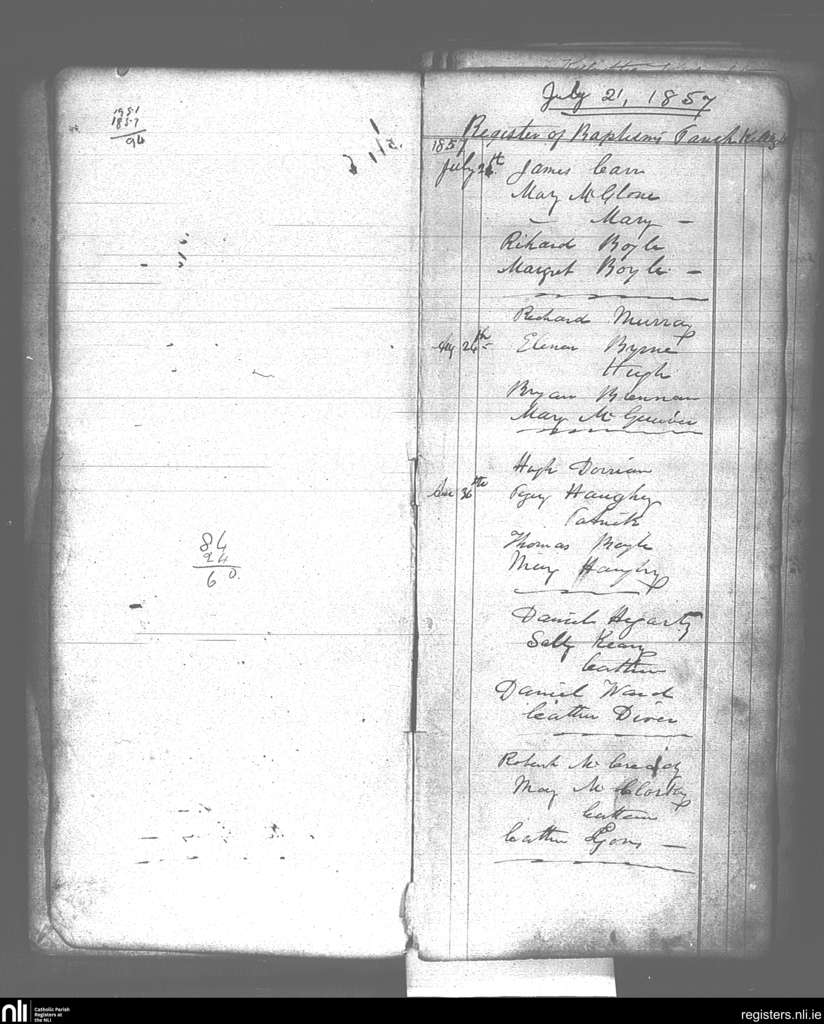 1951
1857
94
84
24
60.
July 21, 1857
Register of Baptisms Parish
1857
July 26th James Carr
Mary McGlone
— Mary —
Richard Boyle
Margret Boyle —
Richard Murray
26th Elenor Byrne
Hugh
Bryan Brennan
Mary
Hugh Dorrian
30th Haughey
Patrick
Thomas Boyle
Mary Haughey
Daniel Hegarty
Sally Keany
Catten
Daniel Ward
Catten Diver
Robert McCready
Mary McCloskey
Catten
Catten Lyons —
nli
Catholic Parish
Registers at
the NLI
registers.nli.ie